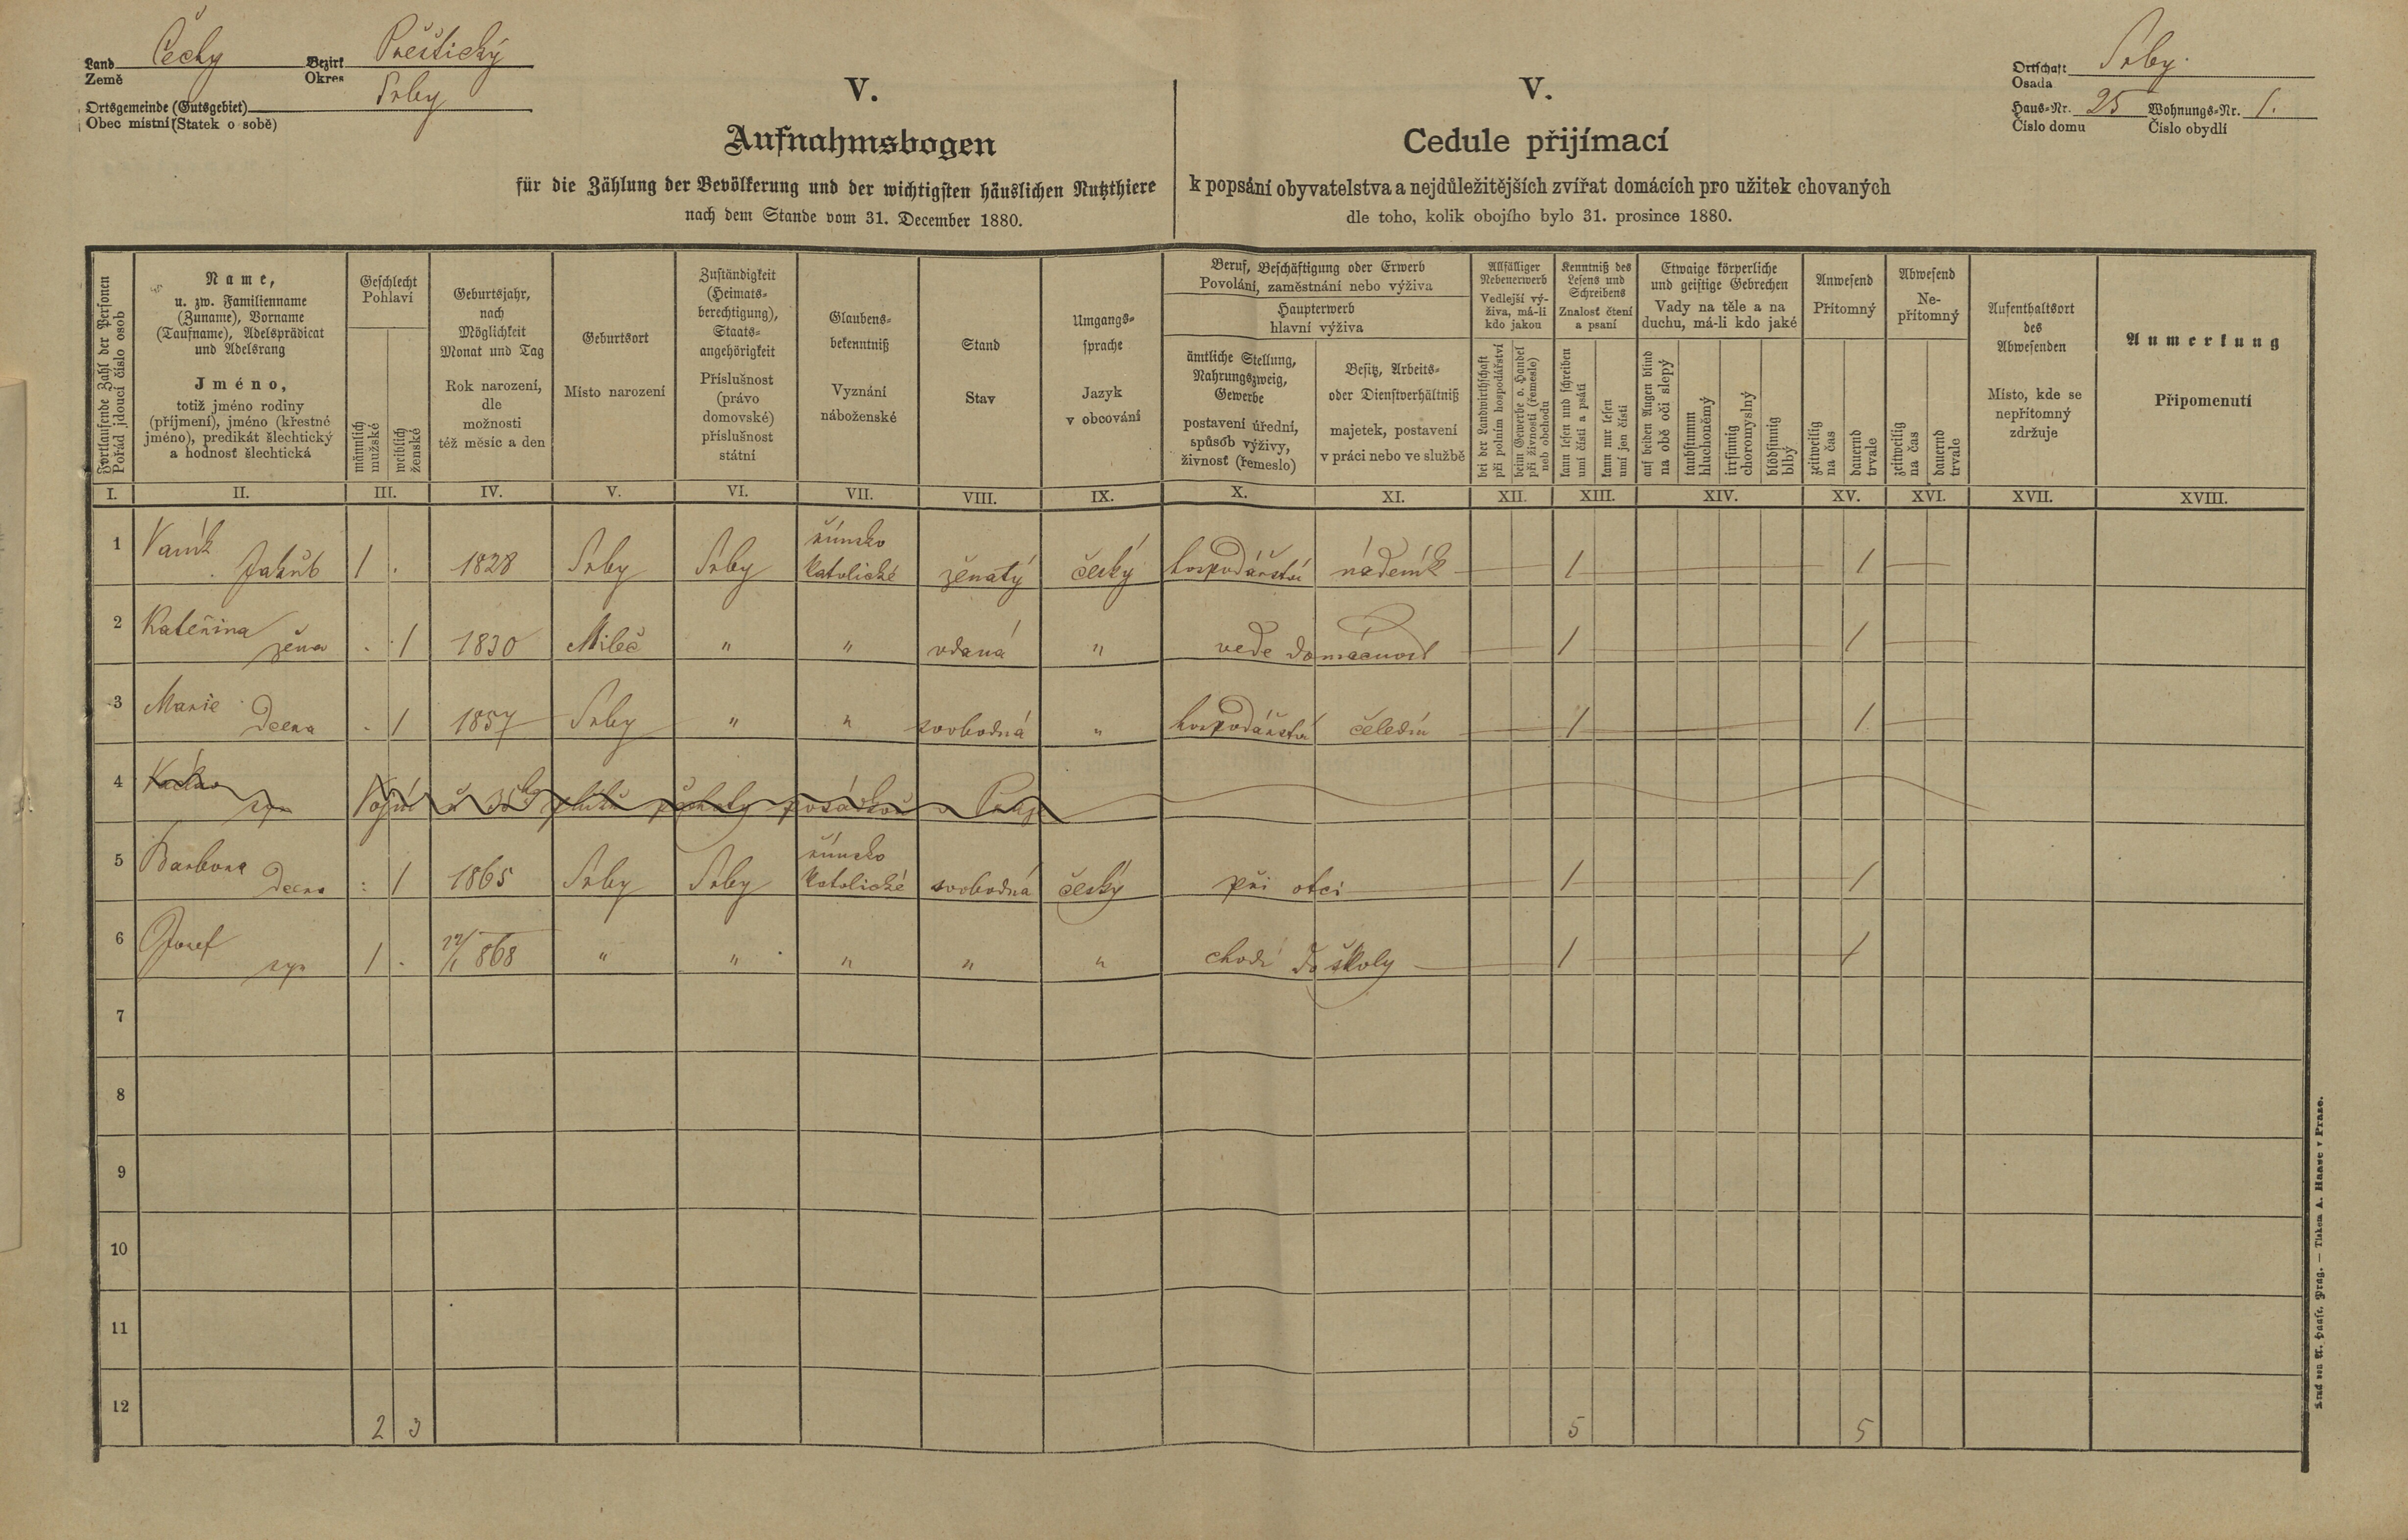 Land Čechy Bezirk Přeštický
Země Okres
Ortsgemeinde (Gutsgebiet) Srby
Obec místní (Statek o sobě)
Ortschaft Srby.
Osada
Haus-Nr. 25 Wohnungs-Nr. 1.
Číslo domu Číslo obydlí
V.
Aufnahmsbogen
für die Zählung der Bevölkerung und der wichtigsten häuslichen Nutzthiere
nach dem Stande vom 31. December 1880.
V.
Cedule přijímací
k popsání obyvatelstva a nejdůležitějších zvířat domácích pro užitek chovaných
dle toho, kolik obojího bylo 31. prosince 1880.
Fortlaufende Zahl der Personen
Pořád jdoucí číslo osob
Name,
u. zw. Familienname
(Zuname), Vorname
(Taufname), Adelsprädicat
und Adelsrang
Jméno,
totiž jméno rodiny
(příjmení), jméno (křestné
jméno), predikát šlechtický
a hodnosť šlechtická
Geschlecht
Pohlaví
männlich
mužské
weiblich
ženské
Geburtsjahr,
nach
Möglichkeit
Monat und Tag
Rok narození,
dle
možnosti
též měsíc a den
Geburtsort
Místo narození
Zuständigkeit
(Heimats-
berechtigung),
Staats-
angehörigkeit
Příslušnost
(právo
domovské)
příslušnost
státní
Glaubens-
bekenntniß
Vyznání
náboženské
Stand
Stav
Umgangs-
sprache
Jazyk
v obcování
Beruf, Beschäftigung oder Erwerb
Povolání, zaměstnání nebo výživa
Haupterwerb
hlavní výživa
ämtliche Stellung,
Nahrungszweig,
Gewerbe
postavení úřední,
spůsob výživy,
živnosť (řemeslo)
Besitz, Arbeits-
oder Dienstverhältniß
majetek, postavení
v práci nebo ve službě
Allfälliger
Nebenerwerb
Vedlejší vý-
živa, má-li
kdo jakou
bei der Landwirthschaft
při polním hospodářství
beim Gewerbe o. Handel
při živnosti (řemeslo)
neb obchodu
Kenntniß des
Lesens und
Schreibens
Znalosť čtení
a psaní
kann lesen und schreiben
umí čísti a psáti
kann nur lesen
umí jen čísti
Etwaige körperliche
und geistige Gebrechen
Vady na těle a na
duchu, má-li kdo jaké
auf beiden Augen blind
na obě oči slepý
taubstumm
hluchoněmý
irrsinnig
choromyslný
blödsinnig
blbý
Anwesend
Přítomný
zeitweilig
na čas
dauernd
trvale
Abwesend
Ne-
přítomný
zeitweilig
na čas
dauernd
trvale
Aufenthaltsort
des
Abwesenden
Místo, kde se
nepřítomný
zdržuje
Anmerkung
Připomenutí
I. II. III. IV. V. VI. VII. VIII. IX. X. XI. XII. XIII. XIV. XV. XVI. XVII. XVIII.
1 Vaník Jakub 1 . 1828 Srby Srby římsko katolické ženatý český hospodářství nádeník 1 1
2 Kateřina žena . 1 1830 Mileč " " vdaná " vede domácnost 1 1
3 Marie dcera . 1 1857 Srby " " svobodná " hospodářství čeledín 1 1
4 syn Vojín u 35 pluku pěchoty posádkou v Praze
5 Barbora dcera : 1 1865 Srby Srby římsko katolické svobodná český při otci 1 1
6 Josef syn 1 . 868 " " " " " chodí do školy 1 1
7
8
9
10
11
12 2 3 5 5
Druck von A. Haase, Prag. — Tiskem A. Haase v Praze.